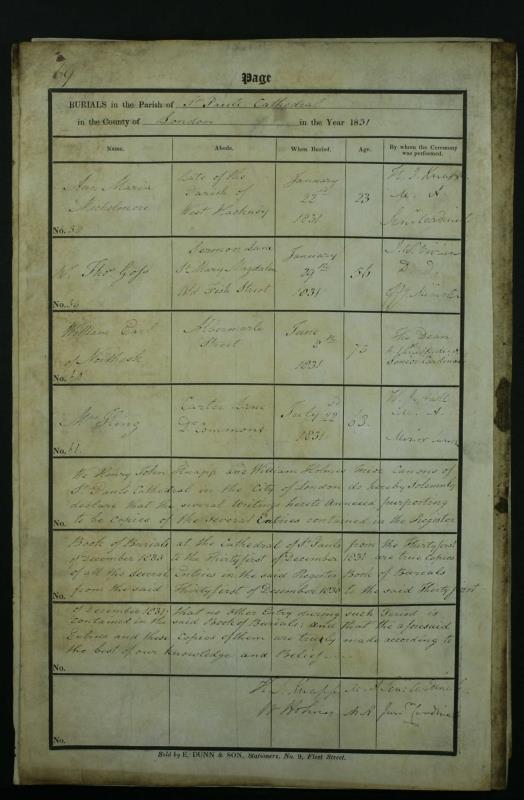 69
Page
BURIALS in the Parish of St Pauls Cathedral
in the County of London in the Year 1831
Name. Abode. When Buried. Age. By whom the Ceremony was performed.
Ann Maria Late of the January H. J. Knapp
Michelmore Parish of 22nd 23 M. A.
No. 58 West Hackney 1831 Senr Cardinal
Sermon Lane January
Thos Goss St Mary Magdalen 29th 56 D. D.
No. 59 Old Fish Street 1831
William Earl Albermarle June The Dean
of Northesk Street 8th 73
No. 60 1831 Senior Cardinal
Carter Lane July
Mrs Drs Commons 22 63 M. A.
No. 61. 1831 Minor Canon
We Henry John Knapp and William Holmes Minor Canons of
St Pauls Cathedral in the City of London do hereby solemnly
declare that the several Writings hereto Annexed purporting
No. to be copies of the several Entries contained in the Register
Book of Burials at the Cathedral of St Pauls from the Thirty first
of December 1830 to the Thirty first of December 1831 are true Copies
of all the several Entries in the said Register Book of Burials
No. from the said Thirty first of December 1830 to the said Thirty first
of December 1831: that no other Entry during such Period is
contained in the said Book of Burials: and that the aforesaid
Entries and these Copies of them are truly made according to
the best of our Knowledge and Belief
No.
H. J. Knapp M. A. Senr Cardinal
W Holmes M A Junr Cardinal
No.
Sold by E. DUNN & SON, Stationers, No. 9, Fleet Street.